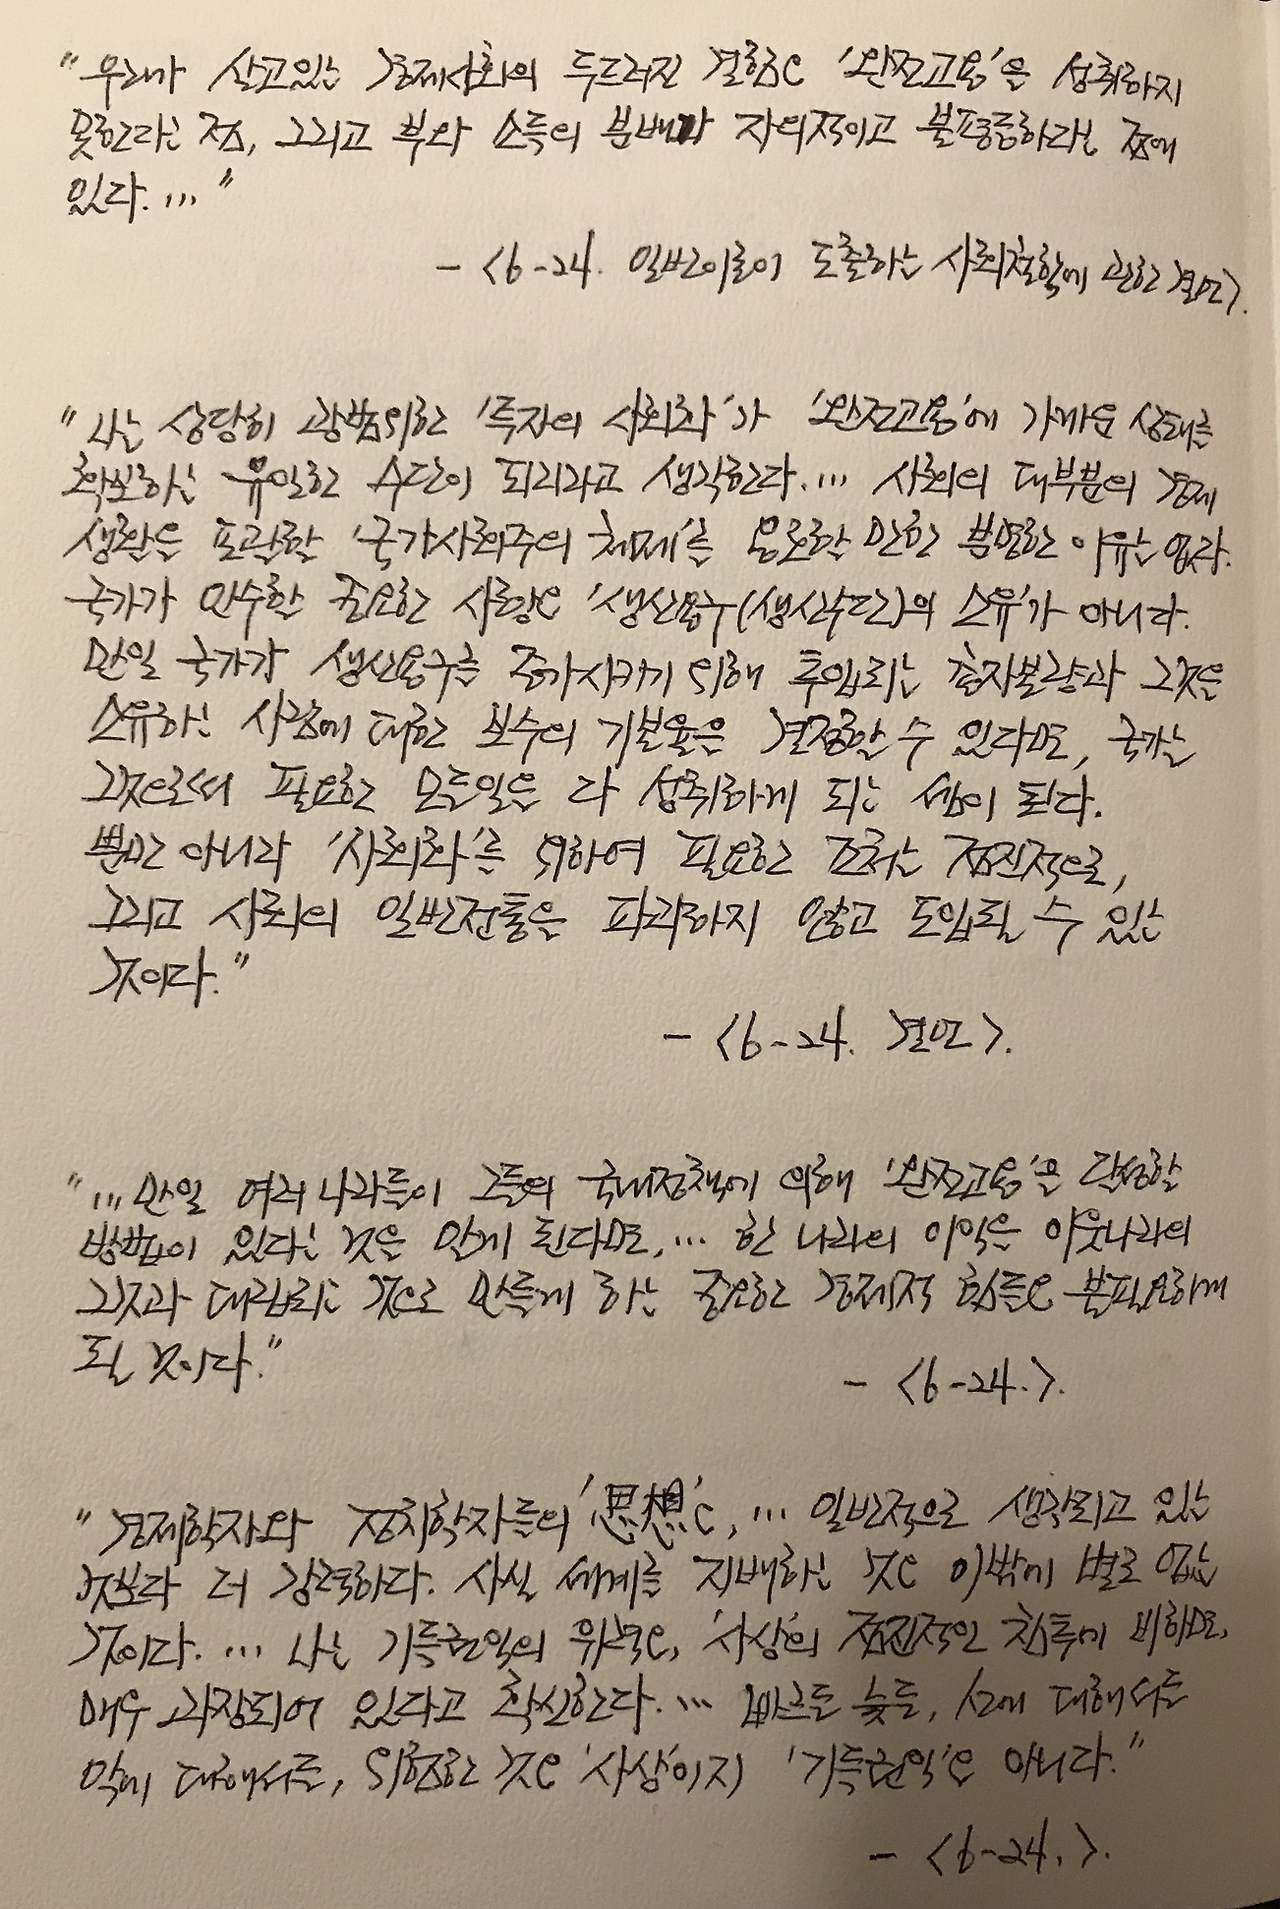 "우리가 살고있는 경제사회의 두드러진 결함은 '완전고용'을 성취하지
못한다는 점, 그리고 부와 소득의 분배가 자의적이고 불평등하다는 점에
있다. ..."
- <6-24. 일반이론이 도출하는 사회철학에 관한 결언>.
"나는 상당히 광범위한 '투자의 사회화'가 '완전고용'에 가까운 상태를
확보하는 유일한 수단이 되리라고 생각한다. ... 사회의 대부분의 경제
생활을 포괄할 '국가사회주의 체제'를 옹호할 만한 분명한 이유는 없다.
국가가 인수할 중요한 사항은 '생산용구(생산수단)의 소유'가 아니다.
만일 국가가 생산용구를 증가시키기 위해 투입되는 총자본량과 그것을
소유하는 사람에 대한 보수의 기본율을 결정할 수 있다면, 국가는
그것으로써 필요한 모든일을 다 성취하게 되는 셈이 된다.
뿐만 아니라 '사회화'를 위하여 필요한 조치는 점진적으로,
그리고 사회의 일반전통을 파괴하지 않고 도입될 수 있는
것이다."
- <6-24. 결언>.
"... 만일 여러 나라들이 그들의 국내정책에 의해 '완전고용'을 달성할
방법이 있다는 것을 알게 된다면, ... 한 나라의 이익을 이웃나라의
그것과 대립되는 것으로 만들게 하는 중요한 경제적 힘들은 불필요하게
될 것이다."
- <6-24.>.
"경제학자와 정치학자들의 '思想'은, ... 일반적으로 생각되고 있는
것보다 더 강력하다. 사실 세계를 지배하는 것은 이밖에 별로 없는
것이다. ... 나는 기득권익의 위력은, '사상'의 점진적인 침투에 비하면,
매우 과장되어 있다고 확신한다. ... 빠르든 늦든, 선에 대해서든
악에 대해서든, 위험한 것은 '사상'이지 '기득권익'은 아니다."
- <6-24.>.